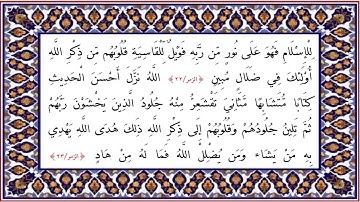 لِلْإِسْلَامِ فَهُوَ عَلَى نُورٍ مِّن رَّبِّهِ فَوَيْلٌ لِّلْقَاسِيَةِ قُلُوبُهُم مِّن ذِكْرِ اللَّهِ
أُوْلَئِكَ فِي ضَلَالٍ مُبِينٍ ﴿الزمر/٢٢﴾ اللَّهُ نَزَّلَ أَحْسَنَ الْحَدِيثِ
كِتَابًا مُّتَشَابِهًا مَّثَانِيَ تَقْشَعِرُّ مِنْهُ جُلُودُ الَّذِينَ يَخْشَوْنَ رَبَّهُمْ
ثُمَّ تَلِينُ جُلُودُهُمْ وَقُلُوبُهُمْ إِلَى ذِكْرِ اللَّهِ ذَلِكَ هُدَى اللَّهِ يَهْدِي
بِهِ مَنْ يَشَاء وَمَن يُضْلِلْ اللَّهُ فَمَا لَهُ مِنْ هَادٍ ﴿الزمر/٢٣﴾